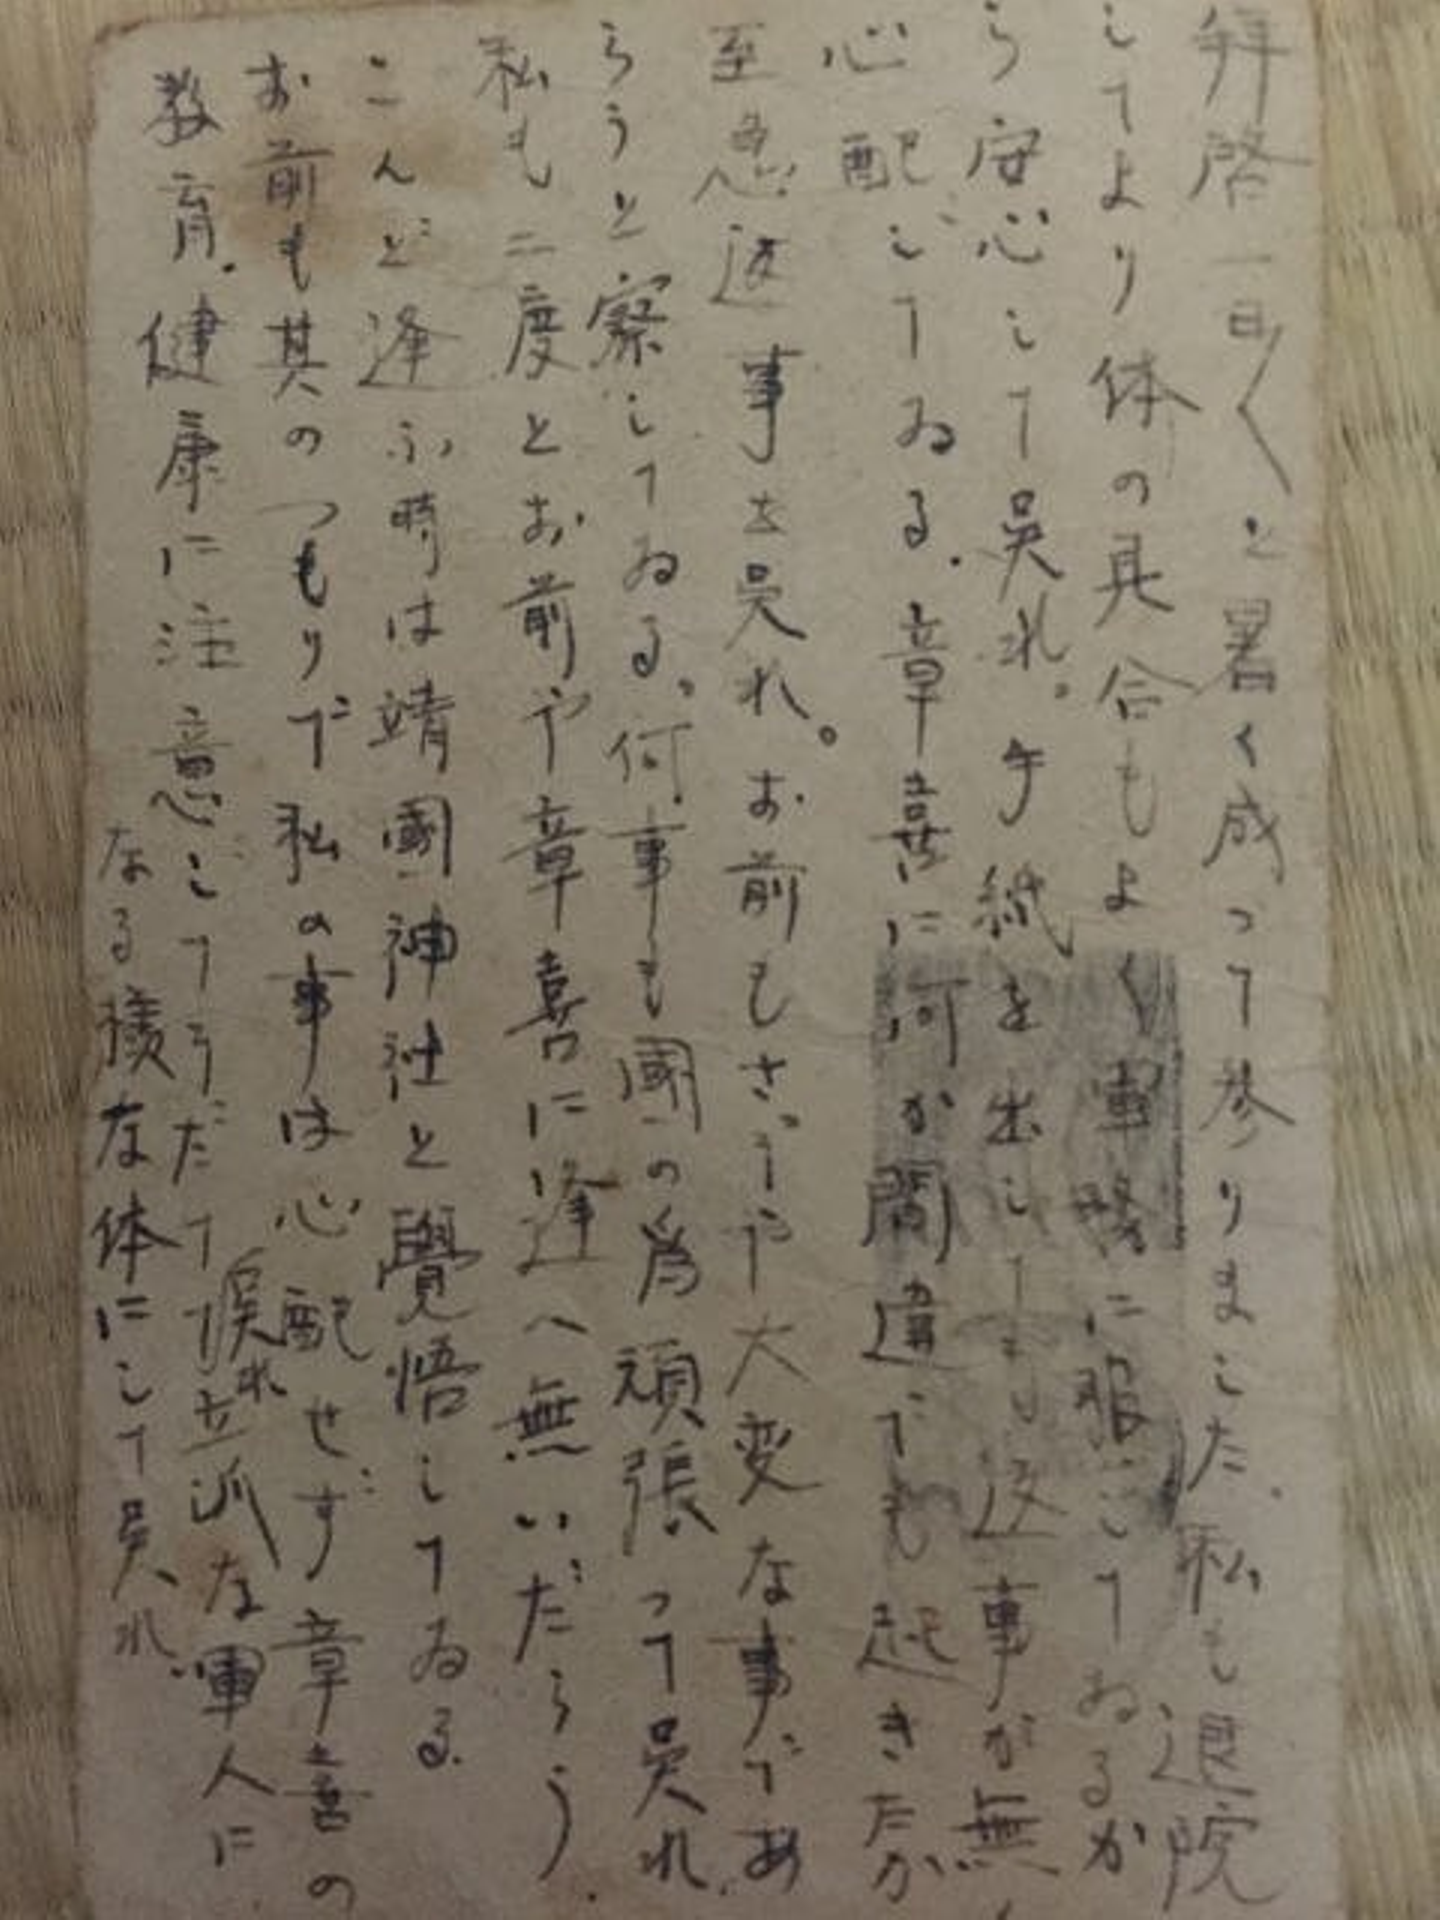 拝啓一日〱と暑く成って参りました.私も退院
してより体の具合もよく軍務に服してゐるか
ら安心して呉れ。手紙を出しても返事が無く
心配してゐる.章喜に何か間違でも起きたか
至急返事を呉れ。お前もさぞや大変な事であ
らうと察してゐる。何事も國の為頑張って呉れ.
私も二度とお前や章喜に逢へ無いだらう.
こんど逢ふ時は靖國神社と覺悟してゐる.
お前も其のつもりで私の事は心配せず章喜の
教育.健康に注意してそだてて呉れ立派な軍人に
なる様な体にして呉れ.